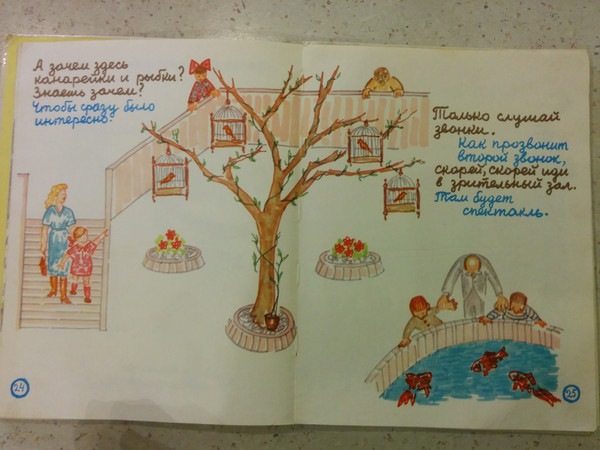 А зачем здесь
канарейки и рыбки?
Знаешь зачем?
Чтобы сразу было
интересно.
Только слушай
звонки.
Как прозвонит
второй звонок,
скорей, скорей иди
в зрительный зал.
Там будет
спектакль.
24
25